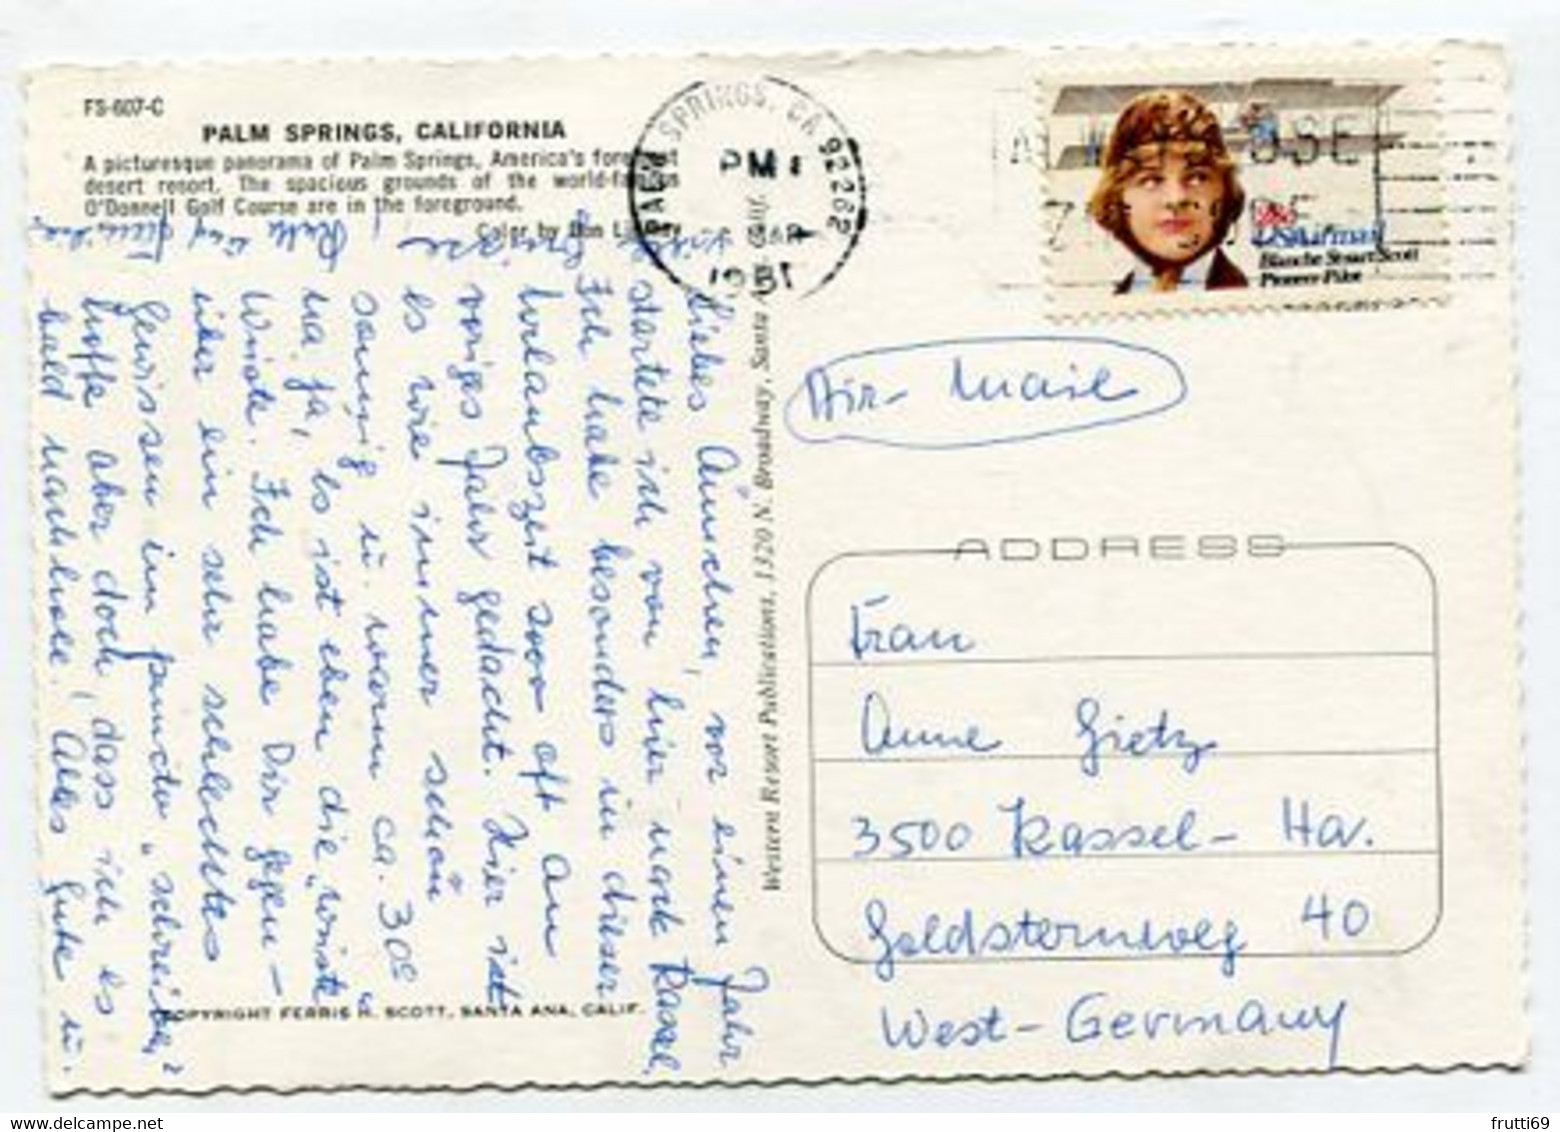 FS-607-C
PALM SPRINGS, CALIFORNIA
A picturesque panorama of Palm Springs, America's foremost
desert resort. The spacious grounds of the world-famous
O'Donnell Golf Course are in the foreground.
Color by Don
PALM SPRINGS, CA 92262
PM
MAR
1981
USAirmail
Blanche Stuart Scott
Pioneer Pilot
Liebes Ännchen, vor einem Jahr
startete ich von hier nach Kassel,
Ich habe besonders in dieser
Urlaubszeit sooo oft an
voriges Jahr gedacht. Hier ist
es wie immer schön
sonnig u. warm ca. 30°
na ja, es ist eben die "Wüste"
Wüste. Ich habe Dir gegen-
über ein sehr schlechtes
Gewissen im puncto "schreiben"
hoffe aber doch, dass ich es
bald nachhole! Alles Gute u.
Western Resort Publications, 1320 N. Broadway, Santa Ana, Calif.
COPYRIGHT FERRIS H. SCOTT, SANTA ANA, CALIF.
Air-Mail
ADDRESS
Frau
Anne Gietz
3500 Kassel-Ha.
Goldsternweg 40
West-Germany
frutti69